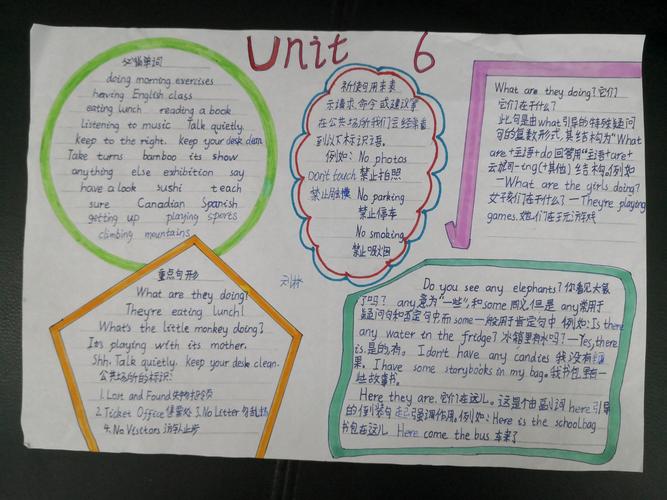 Unit 6
必备单词
doing morning exercises
having English class
eating lunch reading a book
Listening to music Talk quietly.
keep to the right. keep your desk clean
Take turns bamboo its show
anything else exhibition say
have a look sushi teach
sure Canadian Spanish
getting up playing sports
climbing mountains
祈使句用来表
示请求,命令或建议等
在公共场所我们会经常看
到以下标识语。
例如: No photos
Don't touch 禁止拍照
禁止触摸 No parking
禁止停车
No smoking
禁止吸烟
What are they doing?它们
它们在干什么?
此句是由what引导的特殊疑问
句的复数形式,其结构为"What
are+主语+do 回答用"主语+are+
去就可-ing(+其他)结构。例如
—What are the girls doing?
女孩们在干什么? —They're playing
games.她们在玩游戏
重点句形
What are they doing?
They're eating lunch!
What's the little monkey doing?
It's playing with its mother.
Shh. Talk quietly. keep your desk clean.
公共场所的标识:
1.Lost and Found失物招领
2.Ticket Office售票处 3.No Letter勿乱扔
4.No Visitors 访客止步
Do you see any elephants?你看见大象
了吗? any意为"一些",和some同义,但是any常用于
疑问句和否定句中而some一般用于肯定句中.例如:Is there
any water in the fridge?冰箱里有水吗?—Yes,there
is.是的,有。 I don't have any candies 我没有糖
果。I have some storybooks in my bag.我书包里有一
些故事书。
Here they are.它们在这儿。这是个由副词here引导
的倒装句起强调作用。例如:Here is the schoolbag
书包在这儿 Here come the bus 车来了